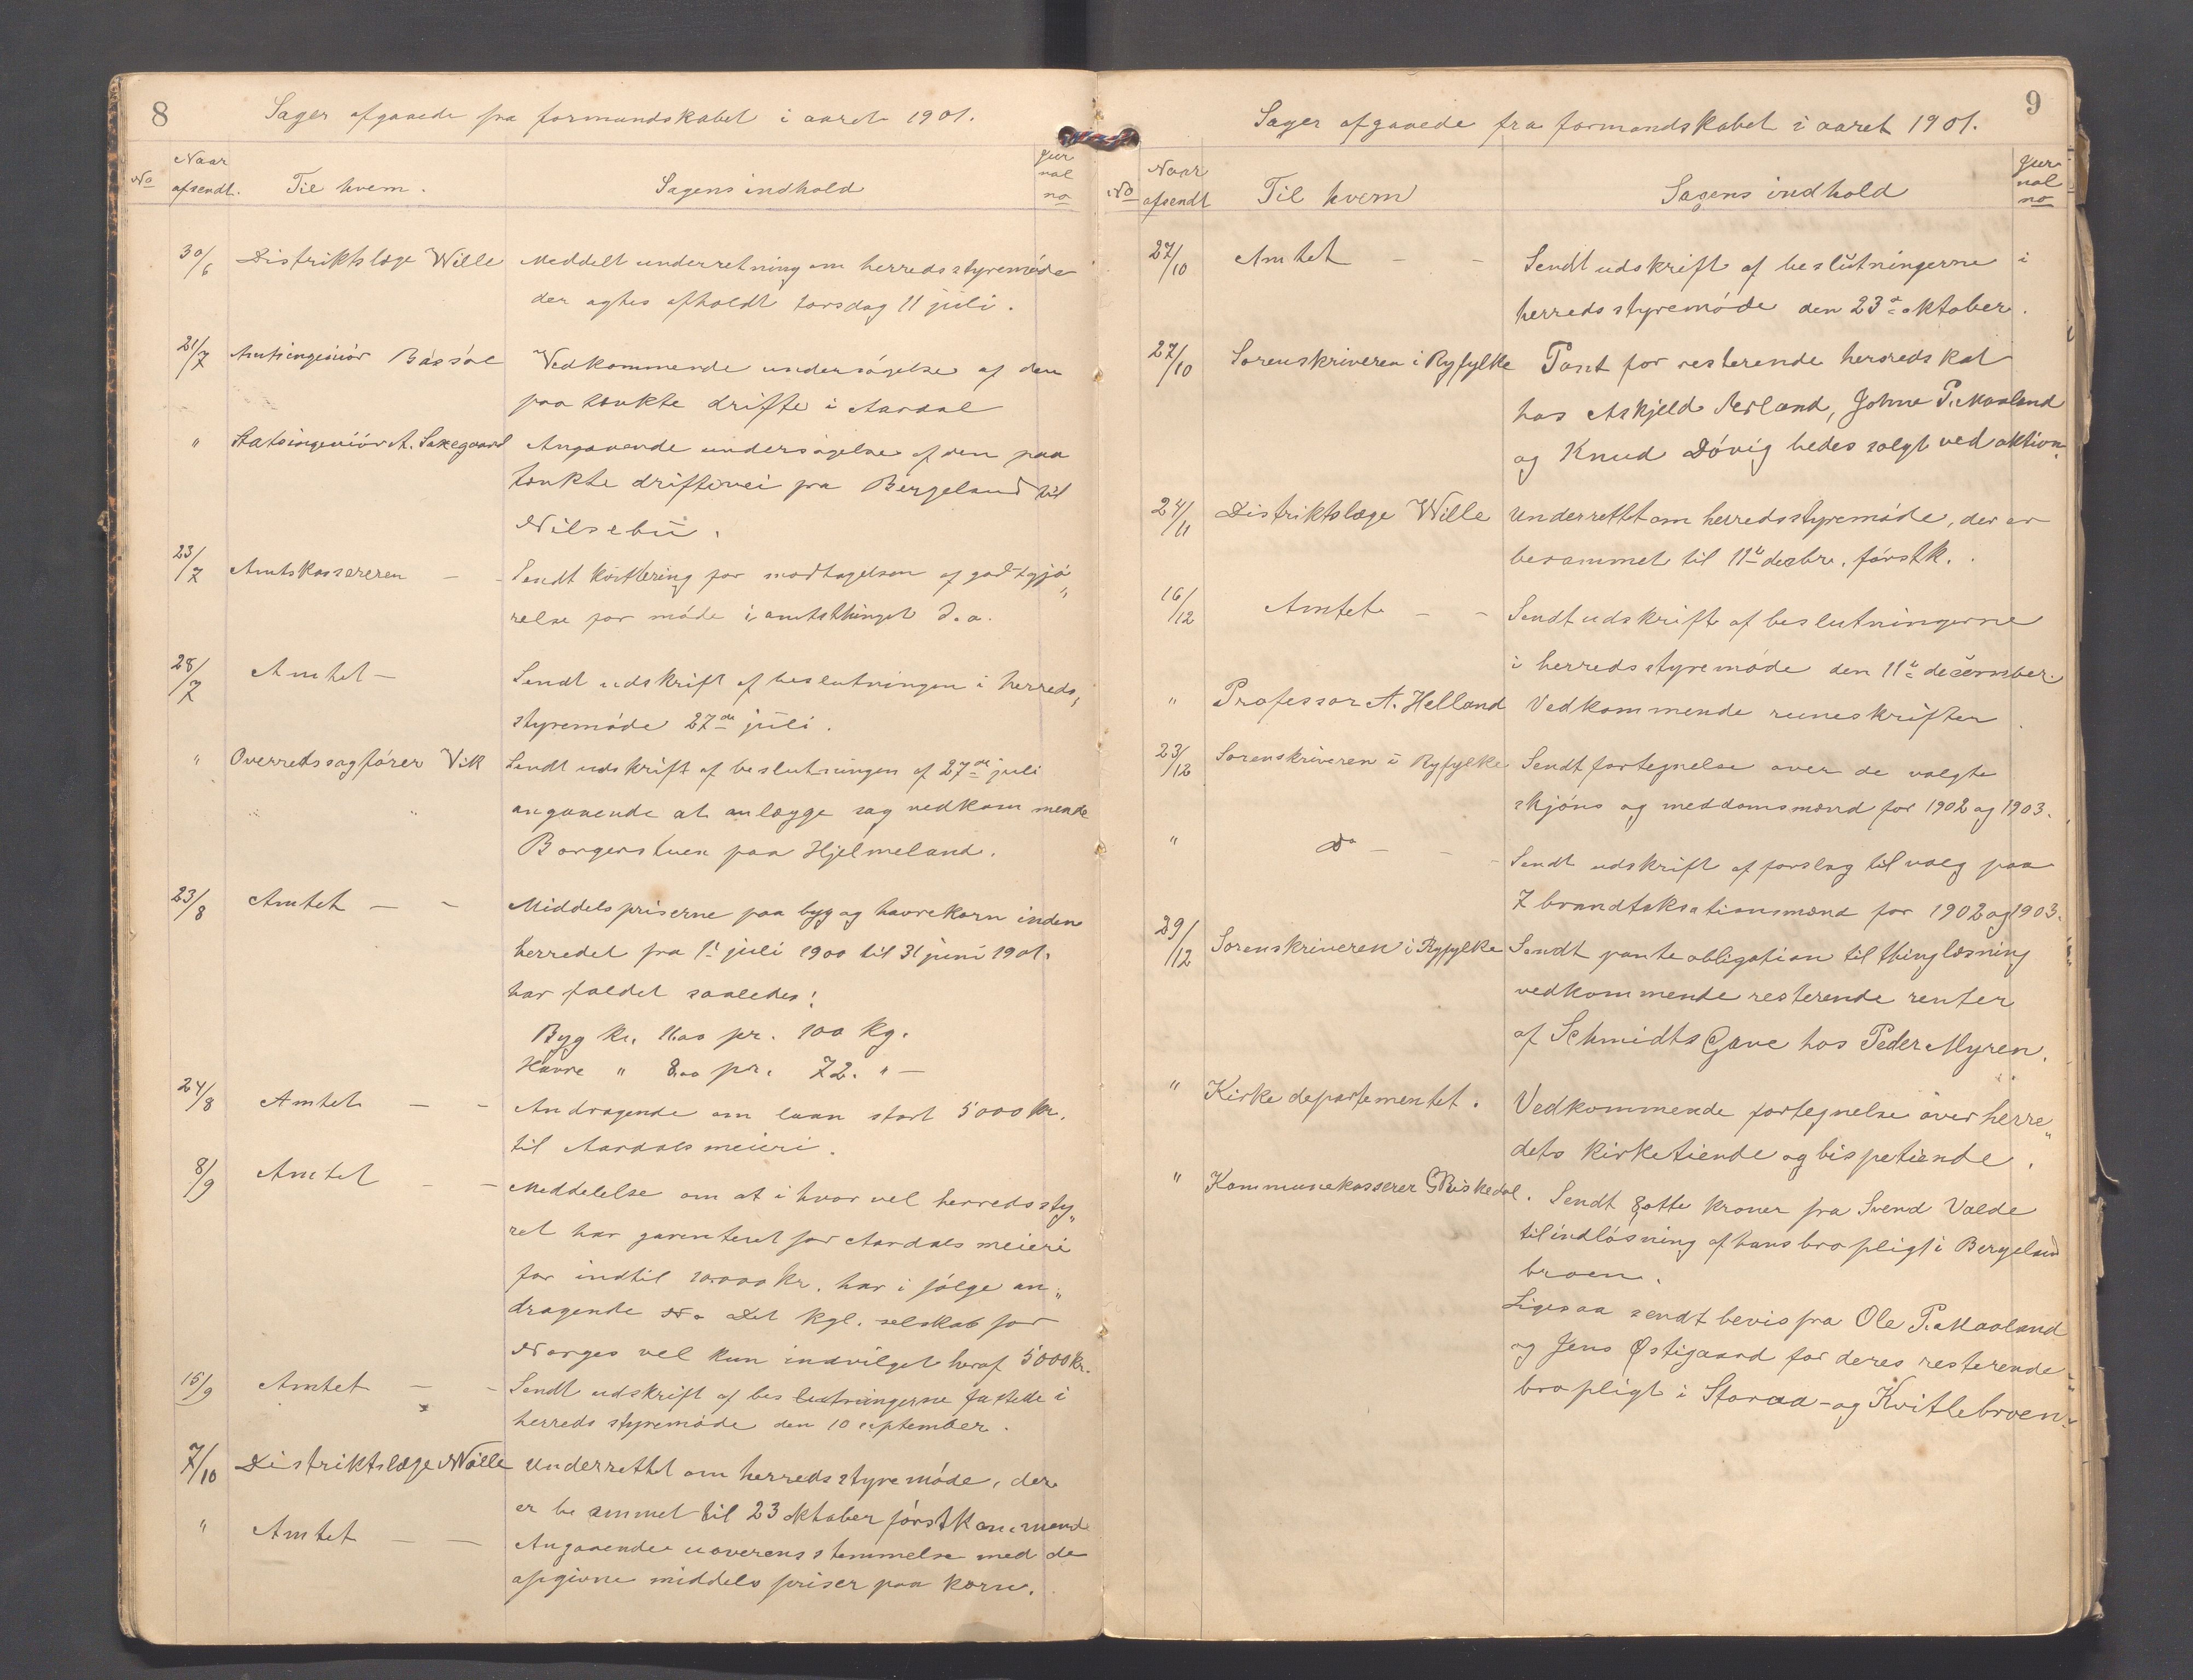 8
Sager afgaaede fra formandskabet i aaret 1901.
No
Naar afsendt.
Til hvem.
Sagens indhold
Jur nal no
30/6 Distriktslæge Wille Meddelt underretning om herredsstyremøde
der agtes afholdt torsdag 11 juli.
21/7 Amtsingeniør Vedkommende undersøgelse af den
paa tænkte drifte i Aardal
" Statsingeniør A. Saxegaard Angaaende undersøgelse af den paa
tænkte driftevei fra Bergeland til
Nilsebu.
23/7 Amtskassereren – – Sendt kvittering for modtagelsen af godtgjø„
relse for møde i amtsthinget d.a.
28/7 Amtet – Sendt udskrift af beslutningen i herreds„
styremøde 27de juli.
" Overretssagfører Vik Sendt udskrift af beslutningen af 27de juli
angaaende at anlægge sag vedkommende
Borgerstuen paa Hjelmeland.
23/8 Amtet – – Middelspriserne paa byg og havrekorn inden
herredet fra 1' juli 1900 til 31 juni 1901.
har faldet saaledes:
Byg kr. 11.00 pr. 100 kg.
Havre " 8.00 pr. 72. " –
24/8 Amtet – – Andragende om laan stort 5000 kr.
til Aardals meieri.
8/9 Amtet – – Meddelelse om at i hvor vel herredssty„
ret har garenteret for Aardals meieri
for indtil 10.000 kr. har i følge an„
dragende Det kgl. selskab for
Norges vel kun indvilget heraf 5000 kr.
15/9 Amtet – – Sendt udskrift af beslutningerne fattede i
herredsstyremøde den 10 september.
7/10 Distriktslæge Wille Underrettet om herredsstyremøde, der
er be ammet til 23 oktober førstkommend
" Amtet – – Angaaende uoverensstemmelse med de
opgivne middels priser paa korn.
9
Sager afgaaede fra formandskabet i aaret 1901.
No
Naar afsendt
Til hvem
Sagens indhold
Jur nal no
27/10 Amtet – – Sendt udskrift af beslutningerne i
herredsstyremøde den 23de oktober.
27/10 Sorenskriveren i Ryfylke Pant for resterende herredskat
hos Askjeld Ærland, Johne P. Maaland
og Knud Døvig bedes solgt ved aktion.
24/11 Distriktslæge Wille Underrettet om herredsstyremøde, der er
berammet til 11te decbr. førstk.
16/12 Amtet – – Sendt udskrift af beslutningerne
i herredsstyremøde den 11te december.
" Professor A. Helland Vedkommende runeskrifter.
23/12 Sorenskriveren i Ryfylke Sendt fortegnelse over de valgte
skjøns og meddomsmænd for 1902 og 1903.
" Do – – – Sendt udskrift af forslag til valg paa
7 brandtakstionsmænd for 1902 og 1903.
29/12 Sorenskriveren i Ryfylke Sendt panteobligation til thinglæsning
vedkommende resterende renter
af Schmidts Gave hos Peder Myren.
" Kirkedepartementet. Vedkommende fortegnelse over herre„
dets kirketiende og bispetiende.
" Kommunekasserer G Riskedal. Sendt 8 otte kroner fra Svend Valde
til indløsning af hans bropligt i Bergeland
broen.
Ligesaa sendt bevis fra Ole P. Maaland
og Jens Østigaard for deres resterende
bropligt i Storaa- og Kvitlebroen.